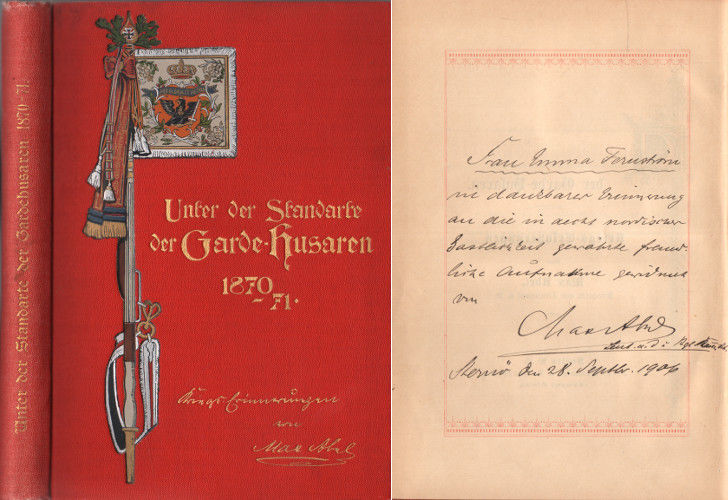 Unter der Standarte der Gardehusaren 1870-71.
Unter der Standarte
der Garde-Husaren
1870
-71.
Kriegs Erinnerungen
von
Max Abel
Frau Emma Fernström
in dankbarer Erinnerung
an die in aecht nordischer
Gastlichkeit gewährte freund-
liche Aufnahme gewidmet
von
Max Abel
den 28. Septbr. 1906